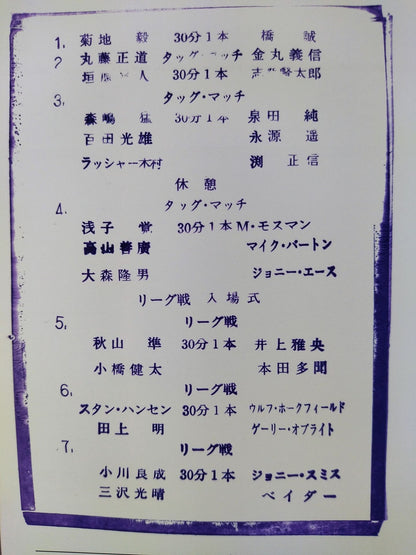 1. 菊地 毅 30分1本 橋 誠
2 丸藤正道 タッグ・マッチ 金丸義信
垣 人 30分1本 志 賢太郎
3. タッグ・マッチ
森嶋 猛 30分1本 泉田 純
百田光雄 永源 遥
ラッシャー木村 渕 正信
休憩
4. タッグ・マッチ
浅子 覚 30分1本 M・モスマン
高山善廣 マイク・バートン
大森隆男 ジョニー・エース
リーグ戦 入場式
5. リーグ戦
秋山 準 30分1本 井上雅央
小橋健太 本田多聞
6. リーグ戦
スタン・ハンセン 30分1本 ウルフ・ホークフィールド
田上 明 ゲーリー・オブライト
7. リーグ戦
小川良成 30分1本 ジョニー・スミス
三沢光晴 ベイダー